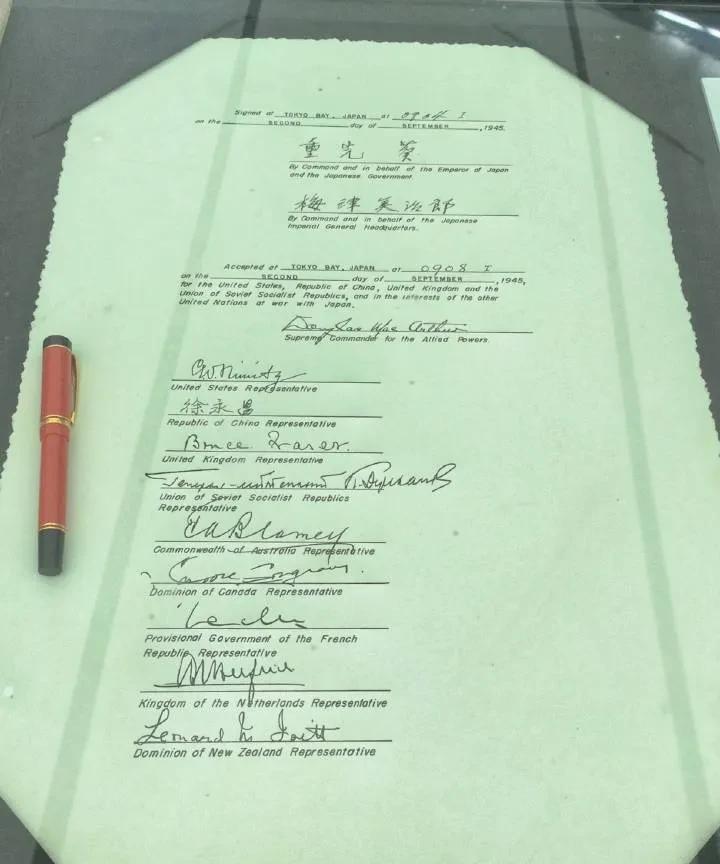 Signed at TOKYO BAY, JAPAN at 0904 I
on the SECOND day of SEPTEMBER, 1945.
重光葵
By Command and in behalf of the Emperor of Japan
and the Japanese Government.
梅津美治郎
By Command and in behalf of the Japanese
Imperial General Headquarters.
Accepted at TOKYO BAY, JAPAN at 0908 I
on the SECOND day of SEPTEMBER, 1945,
for the United States, Republic of China, United Kingdom and the
Union of Soviet Socialist Republics, and in the interests of the other
United Nations at war with Japan.
Douglas MacArthur
Supreme Commander for the Allied Powers.
C.W. Nimitz
United States Representative
徐永昌
Republic of China Representative
Bruce Fraser.
United Kingdom Representative
Union of Soviet Socialist Republics
Representative
T.A. Blamey
Commonwealth of Australia Representative
Dominion of Canada Representative
Leclerc
Provisional Government of the French
Republic Representative
Kingdom of the Netherlands Representative
Leonard M Isitt
Dominion of New Zealand Representative